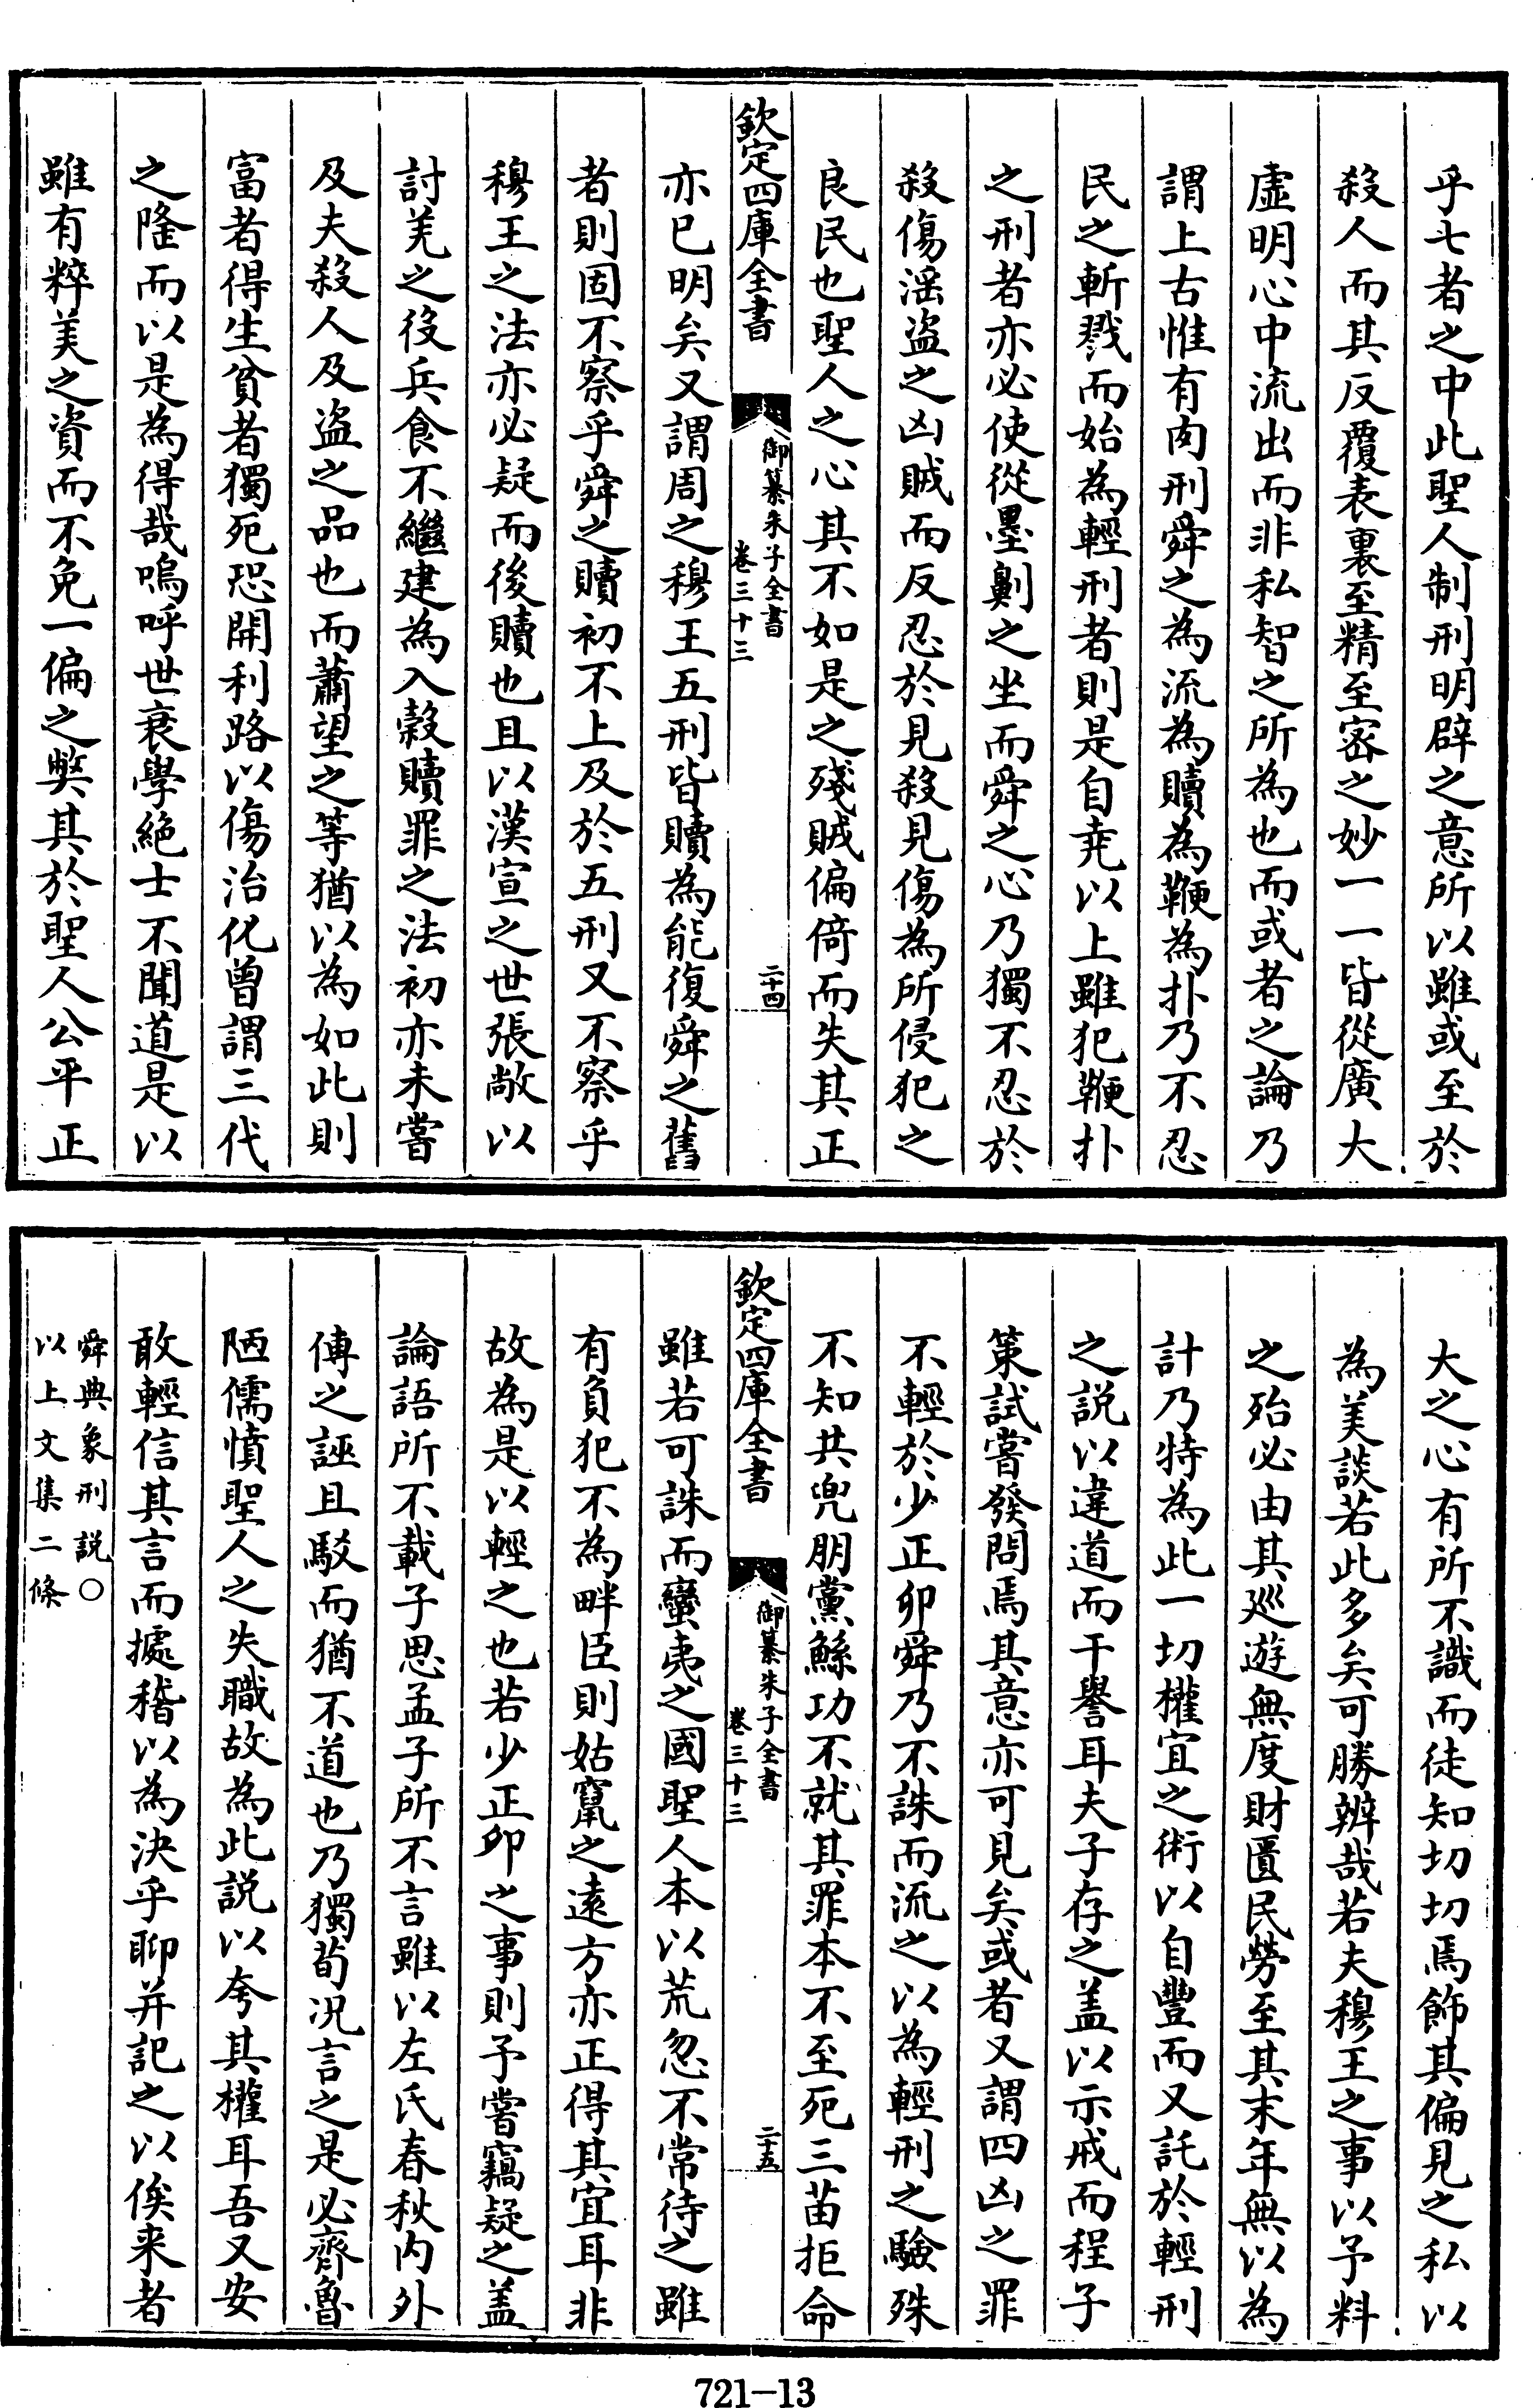 乎七者之中此聖人制刑明辟之意所以雖或至於
殺人而其反覆表裏至精至密之妙一一皆從廣大
虛明心中流出而非私智之所為也而或者之論乃
謂上古惟有肉刑舜之為流為贖為鞭為扑乃不忍
民之斬戮而始為輕刑者則是自堯以上雖犯鞭扑
之刑者亦必使從墨劓之坐而舜之心乃獨不忍於
殺傷淫盜之凶賊而反忍於見殺見傷為所侵犯之
良民也聖人之心其不如是之殘賊偏倚而失其正
欽定四庫全書
御纂朱子全書
卷三十三
二十四
亦已明矣又謂周之穆王五刑皆贖為能復舜之舊
者則固不察乎舜之贖初不上及於五刑又不察乎
穆王之法亦必疑而後贖也且以漢宣之世張敞以
討羌之役兵食不繼建為入榖贖罪之法初亦未嘗
及夫殺人及盜之品也而蕭望之等猶以為如此則
富者得生貧者獨死恐開利路以傷治化曾謂三代
之隆而以是為得哉嗚呼世衰學絕士不聞道是以
雖有粹美之資而不免一偏之弊其於聖人公平正
大之心有所不識而徒知切切焉飾其偏見之私以
為美談若此多矣可勝辨哉若夫穆王之事以予料
之殆必由其巡遊無度財匱民勞至其末年無以為
計乃特為此一切權宜之術以自豐而又託於輕刑
之說以違道而干譽耳夫子存之蓋以示戒而程子
策試嘗發問焉其意亦可見矣或者又謂四凶之罪
不輕於少正卯舜乃不誅而流之以為輕刑之驗殊
不知共兜朋黨鯀功不就其罪本不至死三苗拒命
欽定四庫全書
御纂朱子全書
卷三十三
二十五
雖若可誅而蠻夷之國聖人本以荒忽不常待之雖
有負犯不為畔臣則姑竄之遠方亦正得其宜耳非
故為是以輕之也若少正卯之事則予嘗竊疑之蓋
論語所不載子思孟子所不言雖以左氏春秋內外
傳之誣且駁而猶不道也乃獨荀況言之是必齊魯
陋儒憤聖人之失職故為此說以夸其權耳吾又安
敢輕信其言而據稽以為決乎聊并記之以俟来者
舜典象刑說○
以上文集二條
721-13